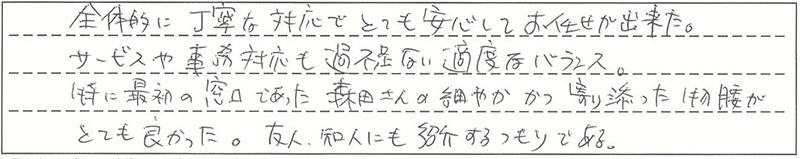 全体的に丁寧な対応でとても安心してお任せが出来た。
サービスや事務対応も過不足ない適度なバランス。
特に最初の窓口であった森田さんの細やかかつ寄り添った物腰が
とても良かった。友人、知人にも紹介するつもりである。